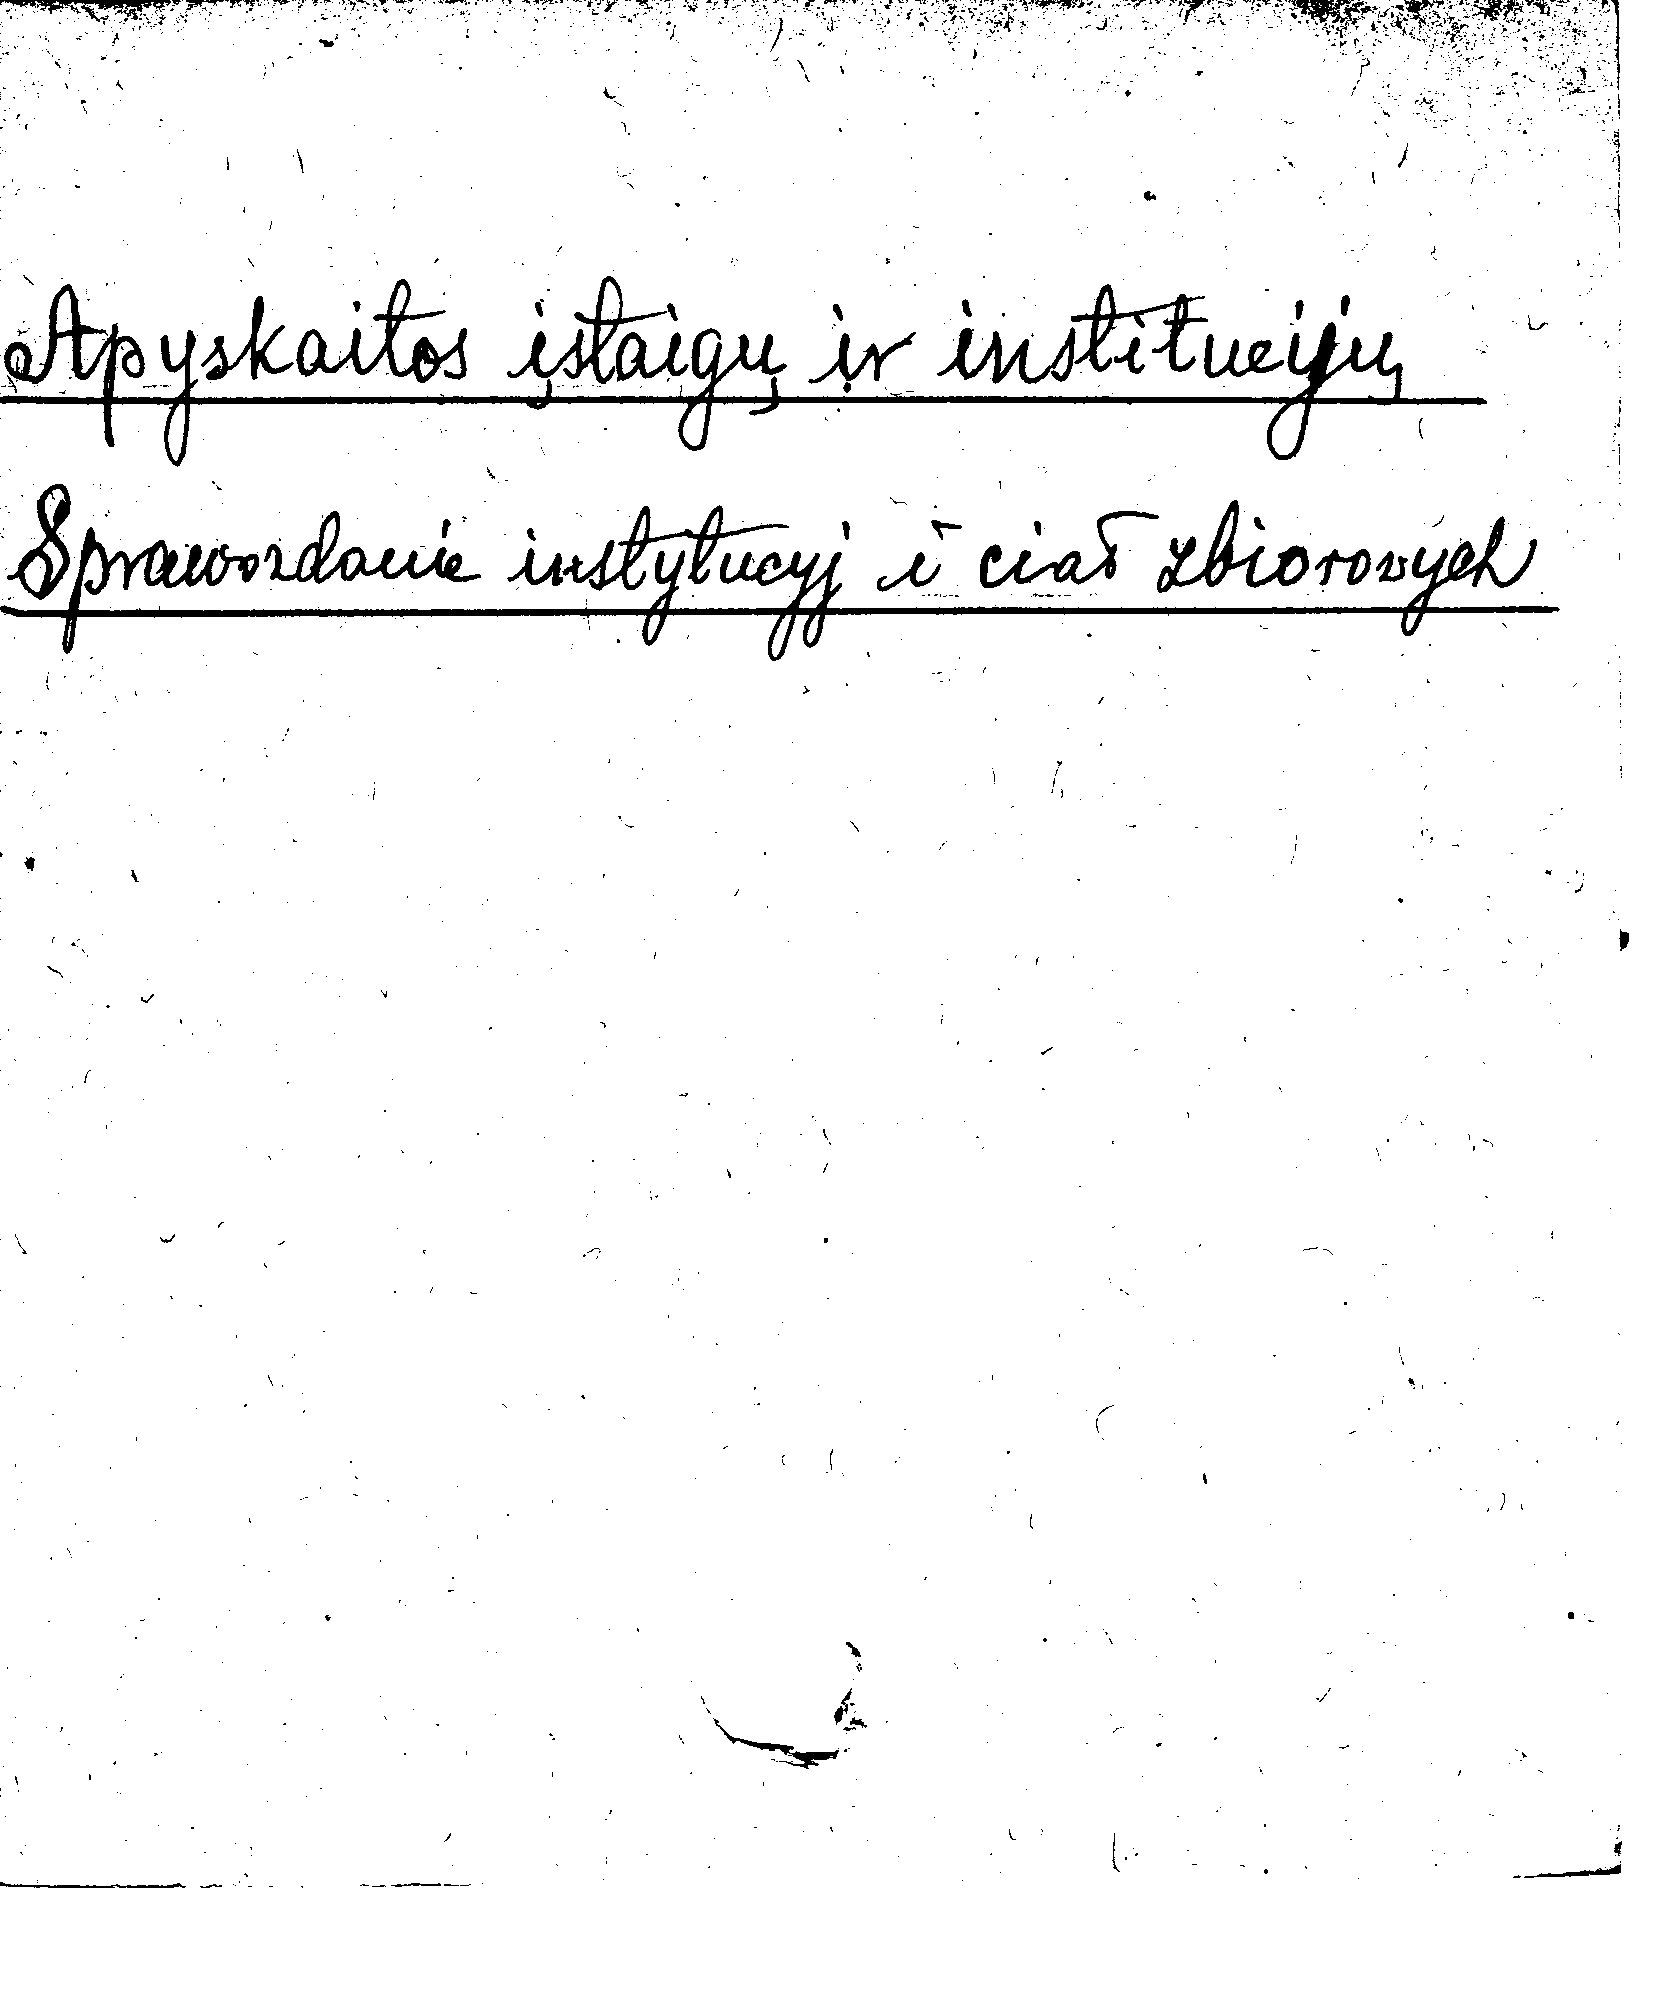 Apyskaitos įstaigų ir institucijų
Sprawozdanie instytucyj i ciał zbiorowych